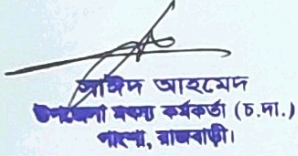 সাঈদ আহমেদ
উপজেলা মৎস্য কর্মকর্তা (চ.দা.)
পাংশা, রাজবাড়ী।